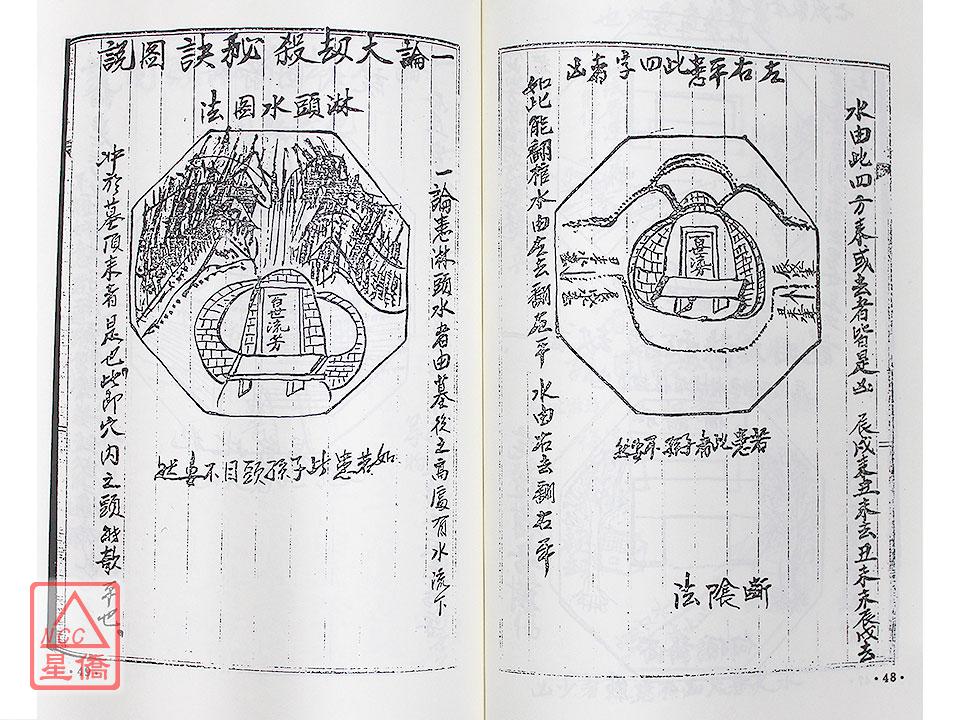 左右平患此四字者凶
水由此四方來或去者皆是凶 辰戌來丑未去丑未來辰戌去
若患此者孫子不安然
如此能翻棺水由左去翻左平 水由右去翻右平
斷陰法
·48·
一論大劫殺秘訣圖説
淋頭水圖法
一論患淋頭水者由墓後之高處有水流下
百世流芳
如若患此子孫頭目不安然
冲於墓頂來者是也此即穴內之頭
·49·
NCC
星僑